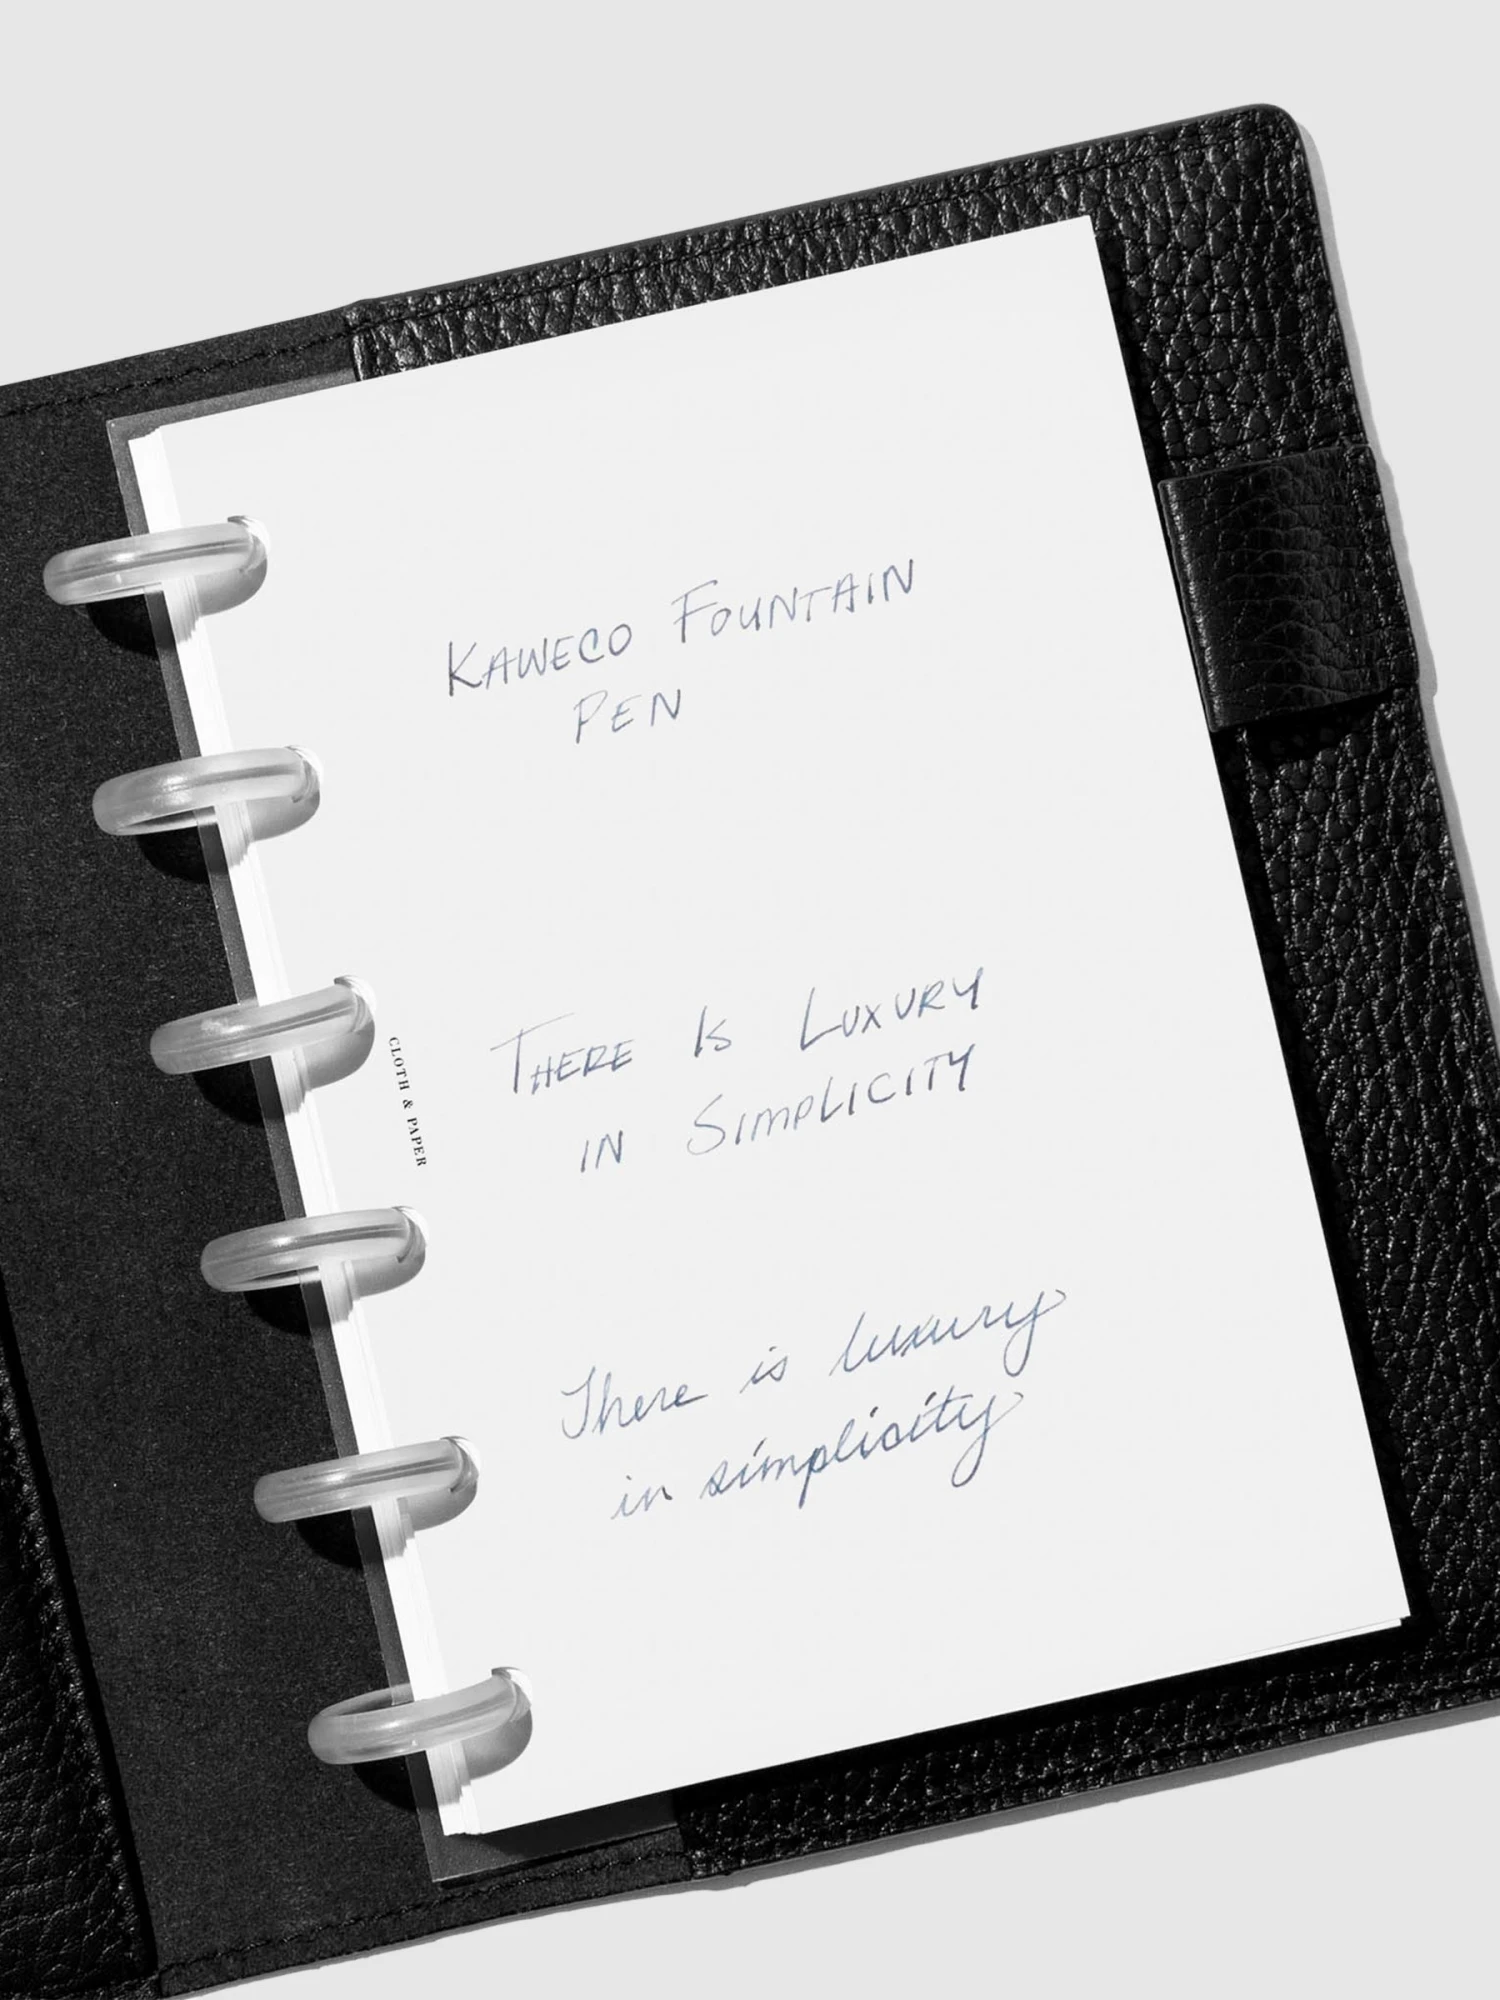 KAWECO FOUNTAIN
PEN
CLOTH & PAPER
THERE IS LUXURY
IN SIMPLICITY
There is luxury
in simplicity